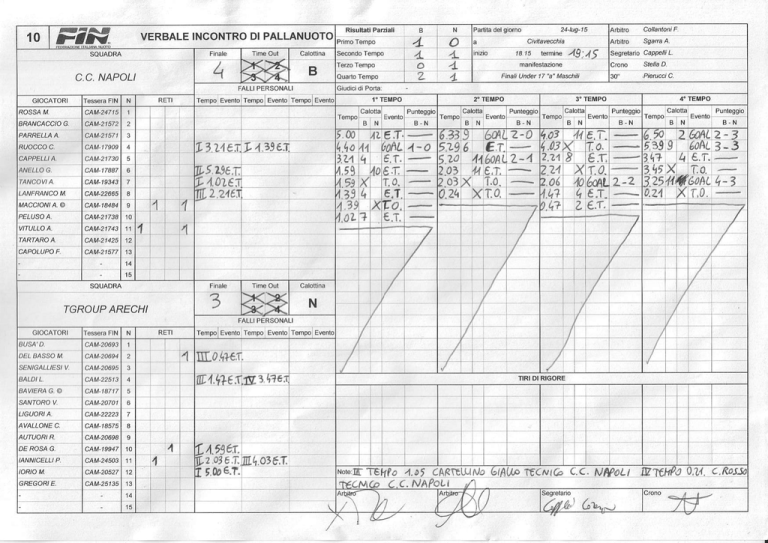 10 FIN VERBALE INCONTRO DI PALLANUOTO
FEDERAZIONE ITALIANA NUOTO
Risultati Parziali B N Partita del giorno 24-lug-15 Arbitro Collantoni F.
Primo Tempo 1 0 a Civitavecchia Arbitro Sgarra A.
SQUADRA Finale Time Out Calottina Secondo Tempo 1 1 inizio 18.15 termine 19:15 Segretario Cappelli L.
C.C. NAPOLI 4 1 2 3 4 B Terzo Tempo 0 1 manifestazione Crono Stella D.
Quarto Tempo 2 1 Finali Under 17 "a" Maschili 30" Pierucci C.
FALLI PERSONALI Giudici di Porta: -
GIOCATORI Tessera FIN N RETI Tempo Evento Tempo Evento Tempo Evento
ROSSA M. CAM-24715 1
BRANCACCIO G. CAM-21572 2
PARRELLA A. CAM-21571 3
RUOCCO C. CAM-17909 4 I 3.21 E.T. I 1.39 E.T.
CAPPELLI A. CAM-21730 5
ANELLO G. CAM-17887 6 II 5.29 E.T.
TANCOVI A. CAM-19343 7 I 1.02 E.T.
LANFRANCO M. CAM-22665 8 III 2.21 E.T.
MACCIONI A. © CAM-18484 9 1 1
PELUSO A. CAM-21738 10
VITULLO A. CAM-21743 11 1 1
TARTARO A. CAM-21425 12
CAPOLUPO F. CAM-21577 13
- - 14
- - 15
1° TEMPO
Tempo Calotta B N Evento Punteggio B - N
5.00 12 E.T. —
4.40 11 GOAL 1-0
3.21 4 E.T. —
1.59 10 E.T. —
1.59 X T.O. —
1.39 4 E.T. —
1.39 X T.O. —
1.02 7 E.T. —
2° TEMPO
Tempo Calotta B N Evento Punteggio B - N
6.33 9 GOAL 2-0
5.29 6 E.T. —
5.20 11 GOAL 2-1
2.03 11 E.T. —
2.03 X T.O. —
0.24 X T.O. —
3° TEMPO
Tempo Calotta B N Evento Punteggio B - N
4.03 11 E.T. —
4.03 X T.O. —
2.21 8 E.T. —
2.21 X T.O. —
2.06 10 GOAL 2-2
1.47 4 E.T. —
0.47 2 E.T. —
4° TEMPO
Tempo Calotta B N Evento Punteggio B - N
6.50 2 GOAL 2-3
5.39 9 GOAL 3-3
3.47 4 E.T. —
3.45 X T.O. —
3.25 11 GOAL 4-3
0.21 X T.O. —
SQUADRA Finale Time Out Calottina
TGROUP ARECHI 3 1 2 3 4 N
FALLI PERSONALI
GIOCATORI Tessera FIN N RETI Tempo Evento Tempo Evento Tempo Evento
BUSA' D. CAM-20693 1
DEL BASSO M. CAM-20694 2 1 III 0.47 E.T.
SENIGALLIESI V. CAM-20695 3
BALDI L. CAM-22513 4 III 1.47 E.T. IV 3.47 E.T.
BAVIERA G. © CAM-18717 5
SANTORO V. CAM-20701 6
LIGUORI A. CAM-22223 7
AVALLONE C. CAM-18575 8
AUTUORI R. CAM-20698 9
DE ROSA G. CAM-19947 10 1 I 1.59 E.T.
IANNICELLI P. CAM-24503 11 1 II 2.03 E.T. III 4.03 E.T.
IORIO M. CAM-20527 12 I 5.00 E.T.
GREGORI E. CAM-25135 13
- - 14
- - 15
TIRI DI RIGORE
Note: III TEMPO 1.05 CARTELLINO GIALLO TECNICO C.C. NAPOLI IV TEMPO 0.21 C. ROSSO
TECNICO C.C. NAPOLI
Arbitro Arbitro Segretario Crono